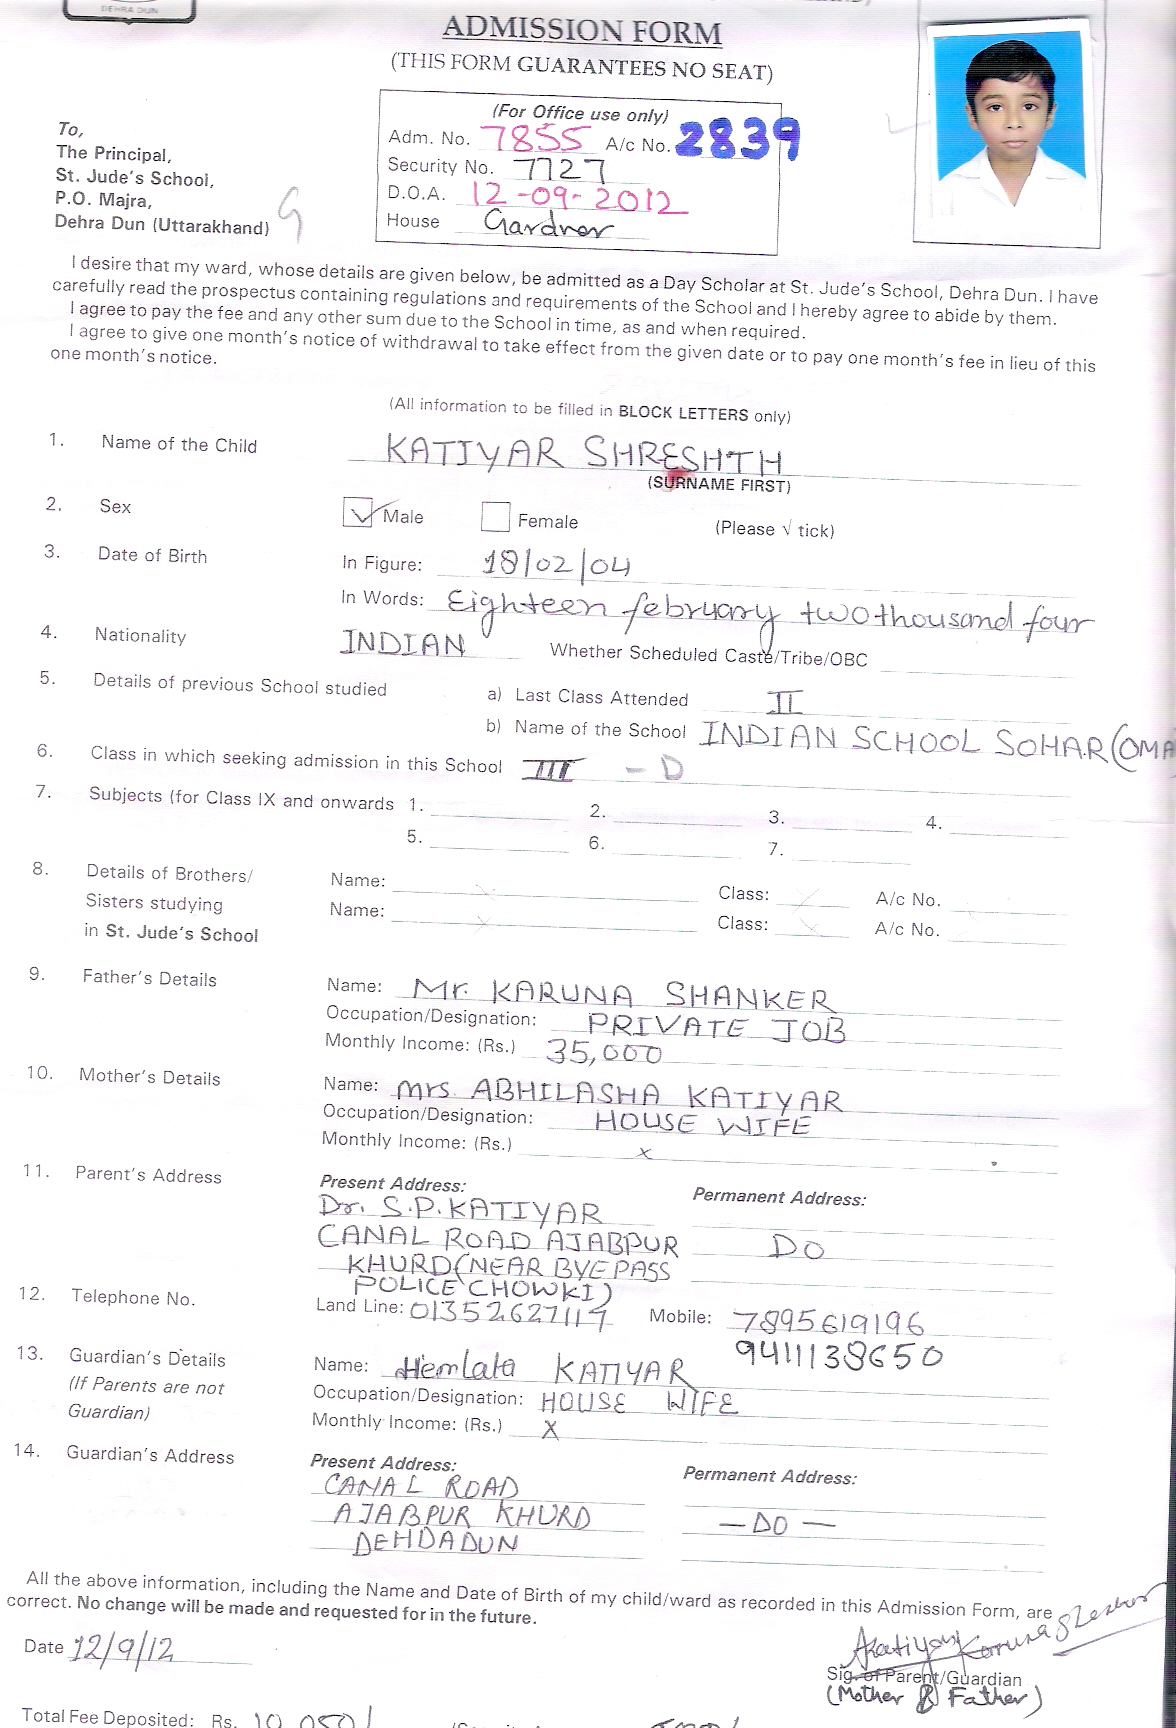 DEHRA DUN
ADMISSION FORM
(THIS FORM GUARANTEES NO SEAT)
(For Office use only)
Adm. No. 7855 A/c No. 2839
Security No. 7727
D.O.A. 12-09-2012
House Gardner
To,
The Principal,
St. Jude's School,
P.O. Majra,
Dehra Dun (Uttarakhand)
I desire that my ward, whose details are given below, be admitted as a Day Scholar at St. Jude's School, Dehra Dun. I have
carefully read the prospectus containing regulations and requirements of the School and I hereby agree to abide by them.
I agree to pay the fee and any other sum due to the School in time, as and when required.
I agree to give one month's notice of withdrawal to take effect from the given date or to pay one month's fee in lieu of this
one month's notice.
(All information to be filled in BLOCK LETTERS only)
1. Name of the Child KATIYAR SHRESHTH
(SURNAME FIRST)
2. Sex Male Female (Please √ tick)
3. Date of Birth In Figure: 18/02/04
In Words: Eighteen february two thousand four
4. Nationality INDIAN Whether Scheduled Caste/Tribe/OBC
5. Details of previous School studied a) Last Class Attended II
b) Name of the School INDIAN SCHOOL SOHAR (OMA
6. Class in which seeking admission in this School III - D
7. Subjects (for Class IX and onwards 1. 2. 3. 4.
5. 6. 7.
8. Details of Brothers/ Name: Class: A/c No.
Sisters studying Name: Class: A/c No.
in St. Jude's School
9. Father's Details Name: Mr. KARUNA SHANKER
Occupation/Designation: PRIVATE JOB
Monthly Income: (Rs.) 35,000
10. Mother's Details Name: Mrs. ABHILASHA KATIYAR
Occupation/Designation: HOUSE WIFE
Monthly Income: (Rs.) x
11. Parent's Address Present Address: Permanent Address:
Dr. S.P. KATIYAR
CANAL ROAD AJABPUR DO
KHURD (NEAR BYE PASS
POLICE CHOWKI)
12. Telephone No. Land Line: 01352627117 Mobile: 7895619196
9411138650
13. Guardian's Details Name: Hemlata KATIYAR
(If Parents are not Occupation/Designation: HOUSE WIFE
Guardian) Monthly Income: (Rs.) X
14. Guardian's Address Present Address: Permanent Address:
CANAL ROAD
AJABPUR KHURD — DO —
DEHDADUN
All the above information, including the Name and Date of Birth of my child/ward as recorded in this Admission Form, are
correct. No change will be made and requested for in the future.
Date 12/9/12 AKatiyar Karuna Shanker
Sig. of Parent/Guardian
(Mother & Father)
Total Fee Deposited: Rs. 10,050/